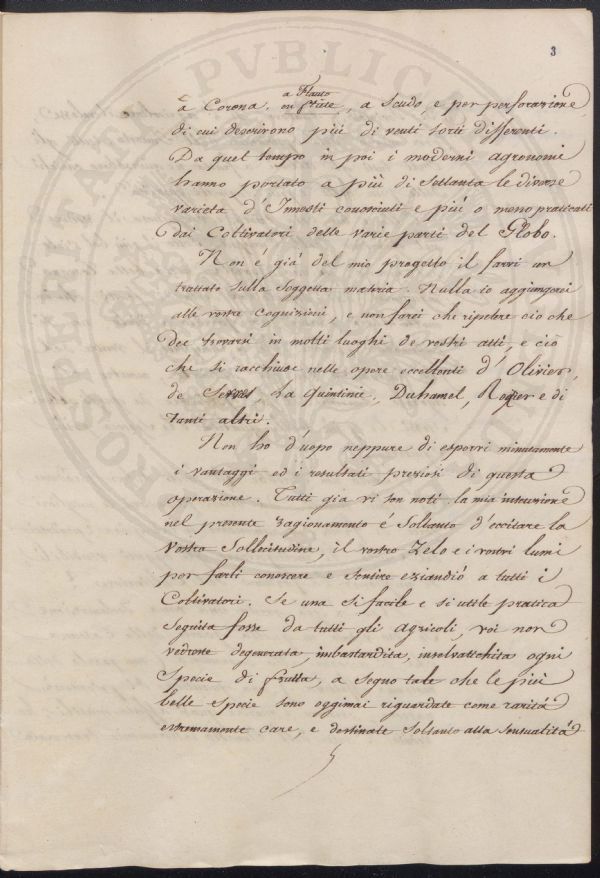 3
a Flauto
à Corona, en flûte, a Scudo, e per perforazione
di cui descrivono più di venti sorti differenti.
Da quel tempo in poi i moderni agronomi
hanno portato a più di Settanta le diverse
varietà d'Innesti conosciuti e più o meno praticati
dai Coltivatori delle varie parti del Globo.
Non é già del mio progetto il farvi un
trattato sulla Soggetta materia. Nulla io aggiungerei
alle vostre Cognizioni, e non farei che ripetere ciò che
dee trovarsi in molti luoghi de vostri atti, e ciò
che si racchiude nelle opere eccellenti d'Olivier,
de Serres, La Quintinie, Duhamel, Rozier e di
tanti altri.
Non ho d'uopo neppure di esporvi minutamente
i vantaggi ed i resultati preziosi di questa
operazione. Tutti gia vi son noti. la mia intenzione
nel presente ragionamento é Soltanto d'eccitare la
Vostra Sollecitudine, il vostro Zelo e i vostri lumi
per farli conoscere e sentire eziandiò a tutti i
Coltivatori. Se una sì facile e sì utile pratica
Seguita fosse da tutti gli agricoli, voi non
vedreste degenerata, imbastardita, insalvatichita ogni
Specie di frutta, a segno tale che le più
belle specie sono oggimai riguardate come rarità
estremamente care, e destinate Soltanto alla Sensualità